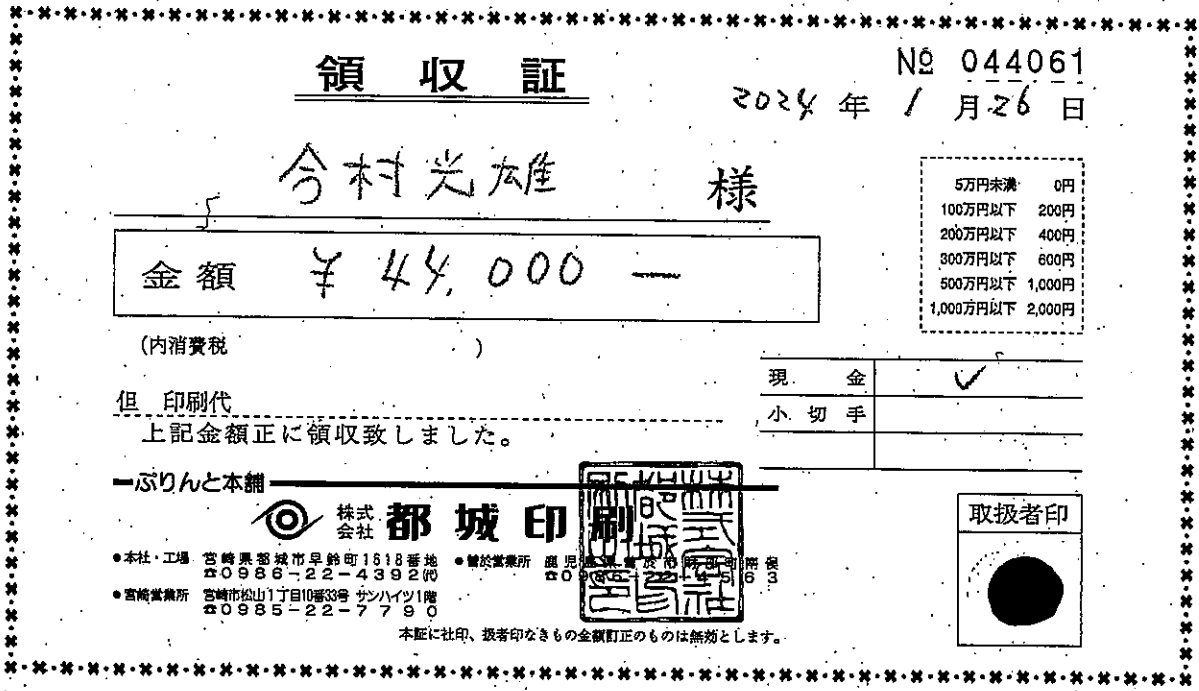 領収証
№ 044061
2024 年 1 月 26 日
今村光雄 様
5万円未満 0円
100万円以下 200円
200万円以下 400円
300万円以下 600円
500万円以下 1,000円
1,000万円以下 2,000円
金額 ¥ 44,000 ―
(内消費税 )
現金 ✓
小切手
但 印刷代
上記金額正に領収致しました。
ぷりんと本舗
株式会社 都城印刷
取扱者印
●本社・工場 宮崎県都城市早鈴町1618番地
☎0986-22-4392㈹
●曽於営業所 鹿児島県曽於市財部町南俣
●宮崎営業所 宮崎市松山1丁目10番33号 サンハイツ1階
☎0985-22-7790
本証に社印、扱者印なきもの金額訂正のものは無効とします。